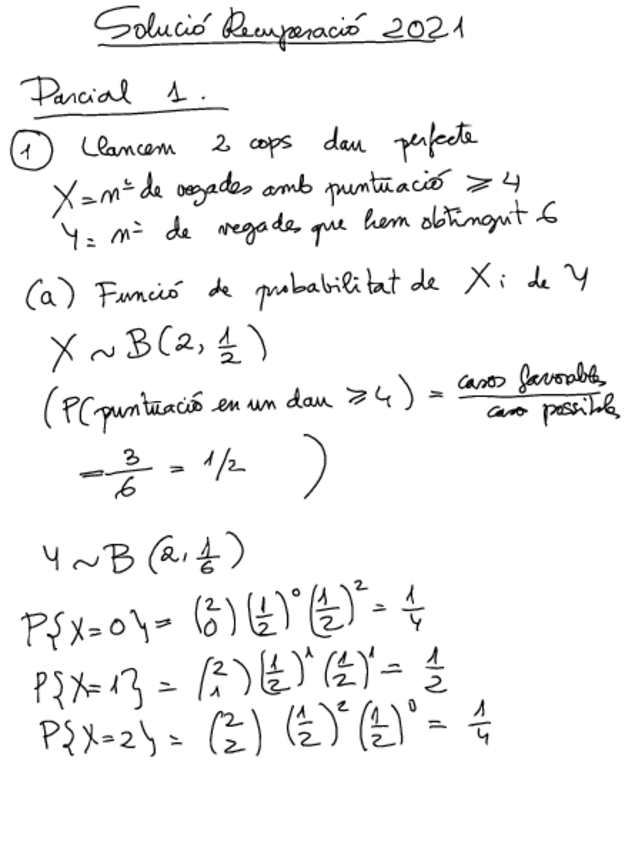 Solució Recuperació 2021
Parcial 1.
1 Llancem 2 cops dau perfecte
X = nº de vegades amb puntuació ≥ 4
Y = nº de vegades que hem obtingut 6
(a) Funció de probabilitat de X i de Y
X ~ B(2, 1/2)
(P(puntuació en un dau ≥ 4) = casos favorables / caso possibles
= 3/6 = 1/2 )
Y ~ B(2, 1/6)
P{X=0} = (2 0) (1/2)^0 (1/2)^2 = 1/4
P{X=1} = (2 1) (1/2)^1 (1/2)^1 = 1/2
P{X=2} = (2 2) (1/2)^2 (1/2)^0 = 1/4